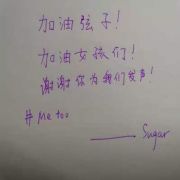 加油弦子!
加油女孩们!
谢谢你为我们发声!
# Me too
——— Sugar